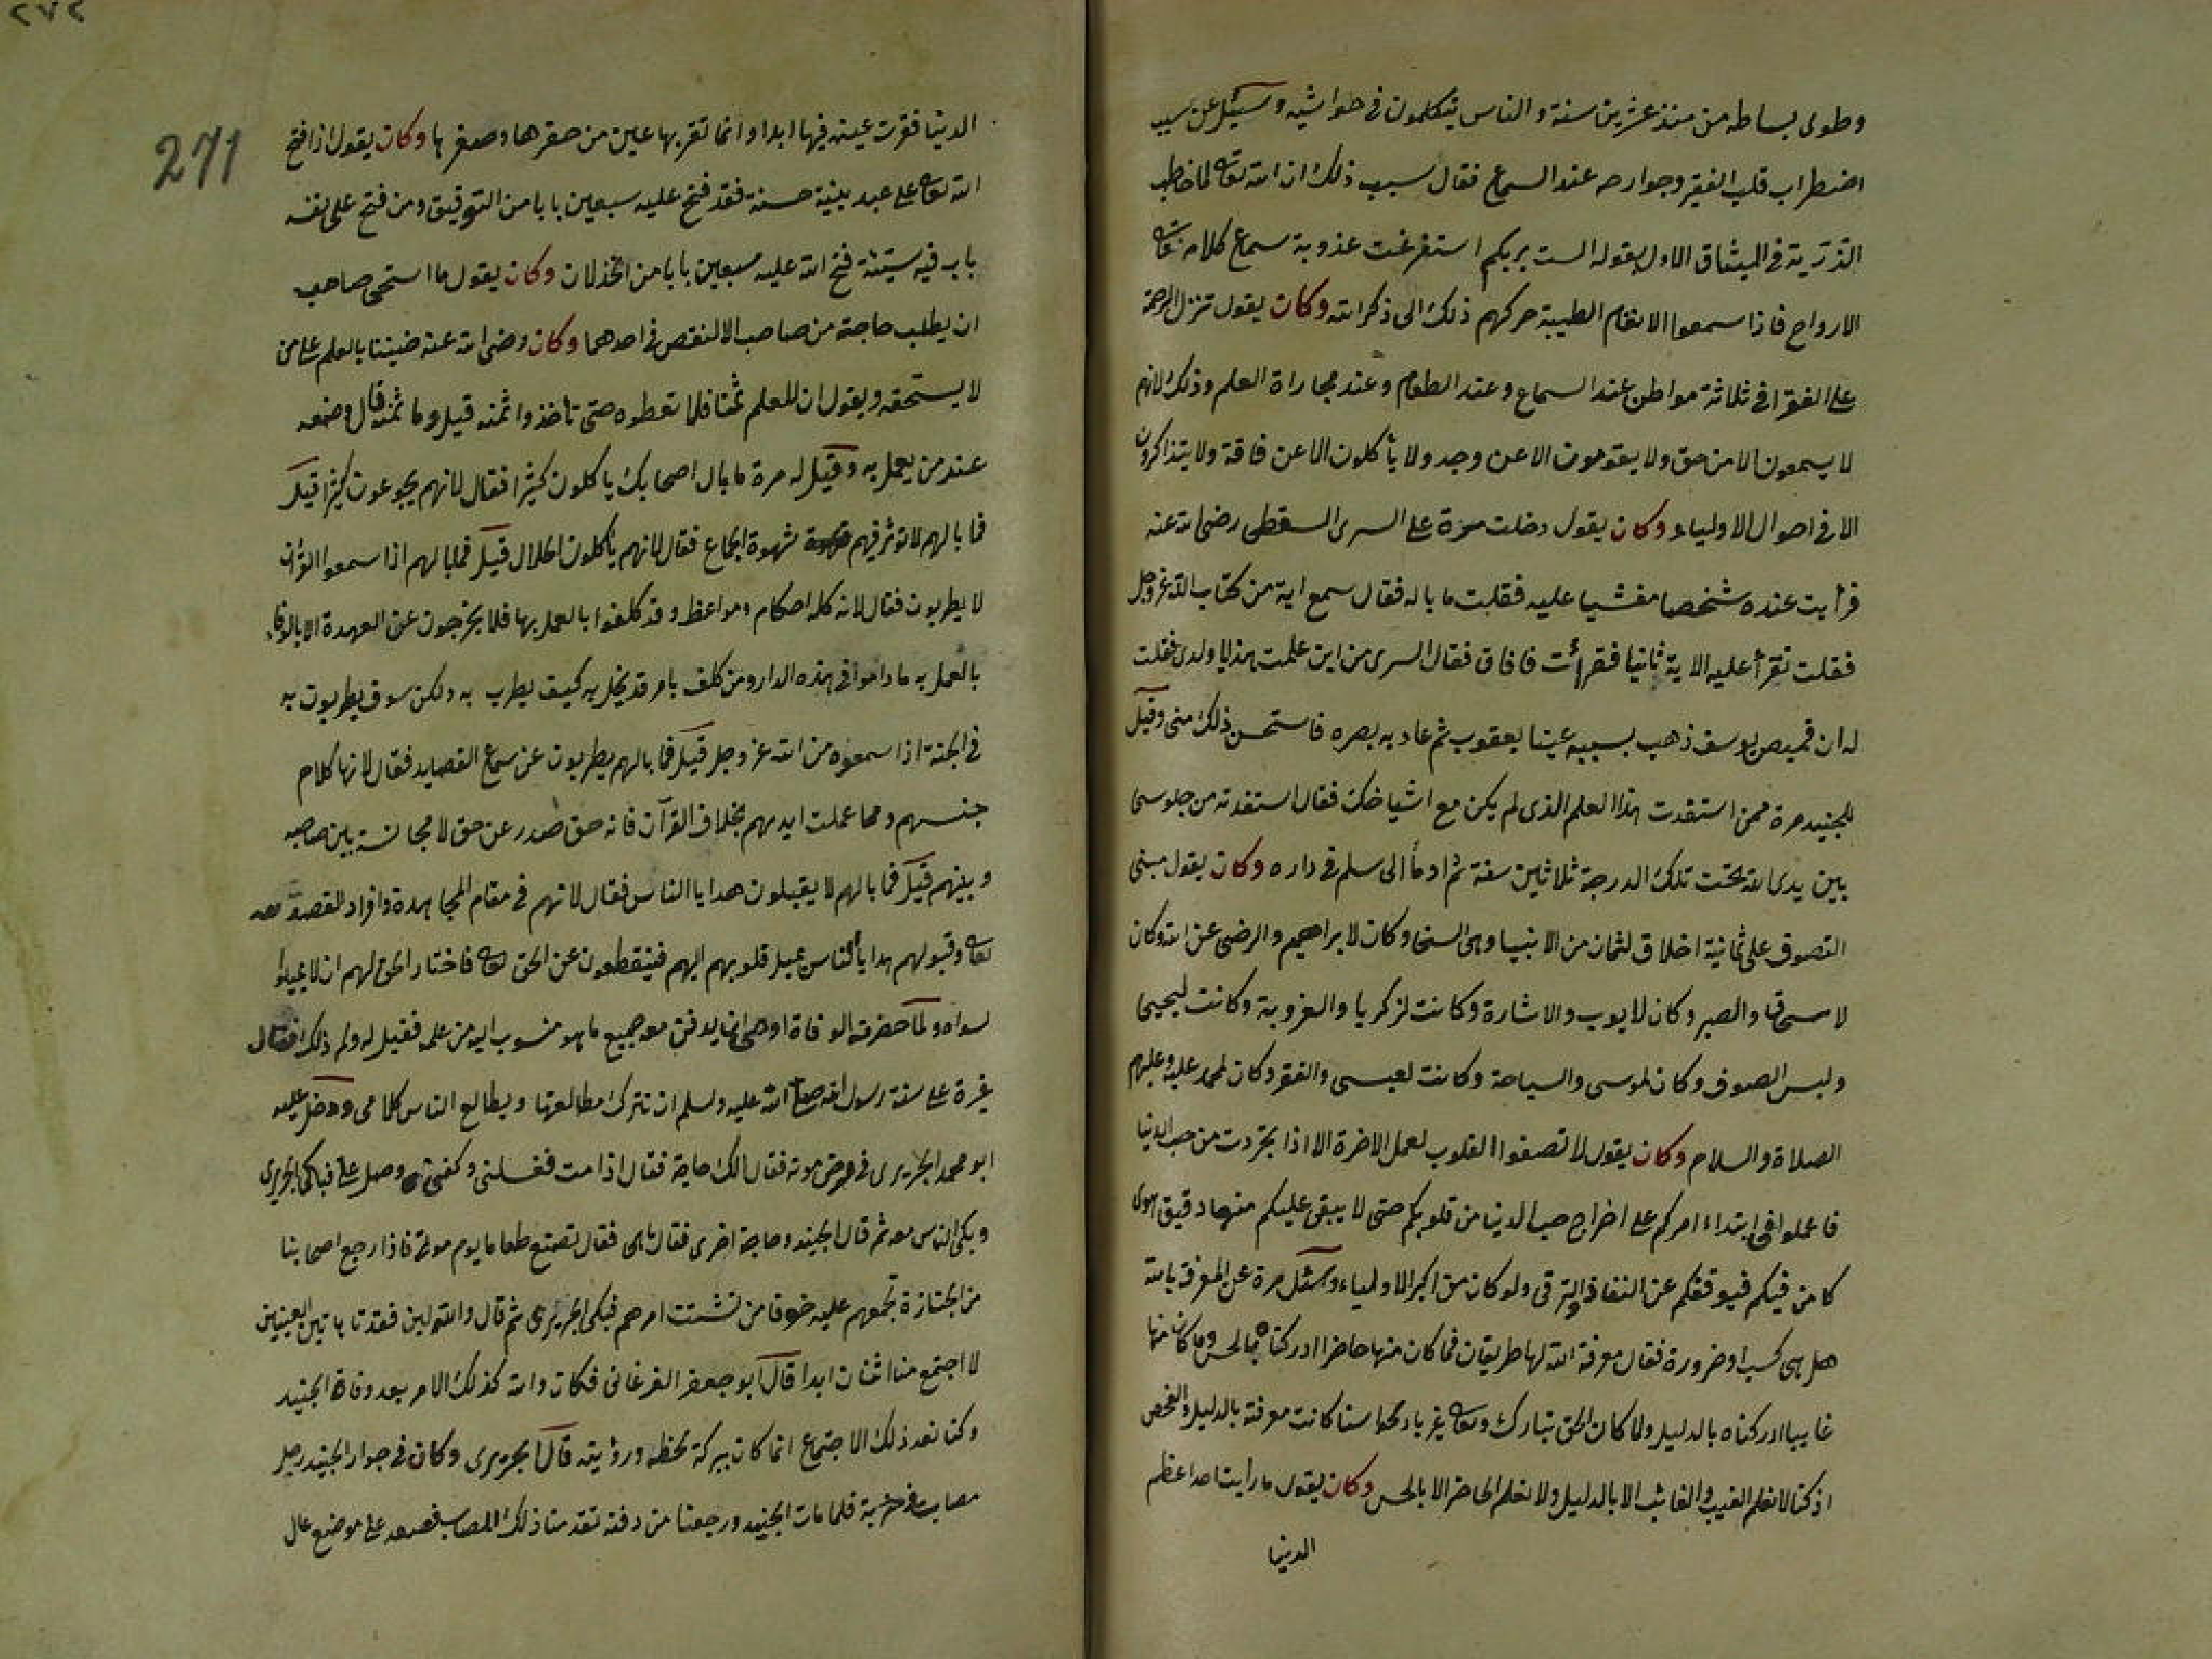 وطوى بساطه من منذ عشرين سنة والناس يتكلمون فى حواشيه وسئل عن سبب
اضطراب قلب الفقير وجوارحه عند السماع فقال سبب ذلك ان الله تعالى لما خاطب
الذرية فى الميثاق الاول بقوله الست بربكم استفرغت عذوبة سماع كلامه تعالى
الارواح فاذا سمعوا الانغام الطيبة حركهم ذلك الى ذكر الله وكان يقول تنزل الرحمة
على الفقرا فى ثلاثة مواطن عند السماع وعند الطعام وعند مجاراة العلم وذلك لانهم
لا يسمعون الا من حق ولا يقومون الا عن وجد ولا يأكلون الا عن فاقة ولا يتذاكرون
الا فى احوال الاولياء وكان يقول دخلت مرة على السرى السقطى رضى الله عنه
فرأيت عنده شخصا مغشيا عليه فقلت ما باله فقال سمع اية من كتاب الله عز وجل
فقلت تقرأ عليه الاية ثانيا فقرأت فافاق فقال السرى من اين علمت هذا يا ولدى فقلت
له ان قميص يوسف ذهب بسببه عينا يعقوب ثم عاد به بصره فاستحسن ذلك منى وقيل
للجنيد مرة ممن استفدت هذا العلم الذى لم يكن مع اشياخك فقال استفدته من جلوسى
بين يدى الله تحت تلك الدرجة ثلاثين سنة ثم اومأ الى سلم فى داره وكان يقول مبنى
التصوف على ثمانية اخلاق لثمان من الانبيا وهى السخا وكان لابراهيم والرضى عن الله وكان
لاسحاق والصبر وكان لايوب والاشارة وكانت لزكريا والعزوبة وكانت ليحيى
ولبس الصوف وكان لموسى والسياحة وكانت لعيسى والفقر وكان لمحمد عليه وعليهم
الصلاة والسلام وكان يقول لا تصفوا القلوب لعمل الاخرة الا اذا تجردت من حب الدنيا
فاعملوا فى ابتداء امركم على اخراج حب الدنيا من قلوبكم حتى لا يبقى عليكم منها دقيق هوى
كامن فيكم فيوقفكم عن النفاذ والترقى ولو كان من اكبر الاولياء وسئل مرة عن المعرفة بالله
هل هى كسب او ضرورة فقال معرفة الله لها طريقان فما كان منها حاضرا ادركناه بالحس وما كان منها
غايبا ادركناه بالدليل ولما كان الحق تبارك وتعالى غير باد لحواسنا كانت معرفته بالدليل والفحص
اذ كنا لا نعلم الغيب والغائب الا بالدليل ولا نعلم الحاضر الا بالحس وكان يقول ما رايت احدا عظم
الدنيا
٢٧٢
271
الدنيا فقرت عينه فيها ابدا وانما تقر بها عين من حقرها وصغر بها وكان يقول اذا فتح
الله تعالى على عبد بنية حسنة فقد فتح عليه سبعين بابا من التوفيق ومن فتح على نفسه
باب فيه سيئة فتح الله عليه سبعين بابا من الخذلان وكان يقول ما استحى صاحب
ان يطلب حاجته من صاحب الا لنقص فى احدهما وكان رضى الله عنه ضنينا بالعلم على من
لا يستحقه ويقول ان للعلم ثمنا فلا تعطوه حتى تأخذوا ثمنه قيل وما ثمنه قال وضعه
عند من يعمل به وقيل له مرة ما بال اصحابك ياكلون كثيرا فقال لانهم يجوعون كثيرا قيل
فما بالهم لا تؤثر فيهم شهوة الجماع فقال لانهم يأكلون الحلال قيل فما بالهم اذا سمعوا القرآن
لا يطربون فقال لانه كله احكام ومواعظ وقد كلفوا بالعمل بها فلا يخرجون عن العهدة الا بالوفاء
بالعمل به ما داموا فى هذه الدار ومن كلف بامر قد يخل به كيف يطرب به ولكن سوف يطربون به
فى الجنة اذا سمعوه من الله عز وجل قيل فما بالهم يطربون عن سماع القصايد فقال لانها كلام
جنسهم ومما عملت ايديهم بخلاف القرآن فانه حق صدر عن حق لا مجانسة بين صاحبه
وبينهم قيل فما بالهم لا يقبلون هدايا الناس فقال لانهم فى مقام المجاهدة وافراد القصد لله
تعالى وقبولهم هدايا الناس يميل قلوبهم اليهم فينقطعون عن الحق تعالى فاختار الحق لهم ان لا يميلوا
لسواه ولما حضرته الوفاة اوصى ان يدفن معه جميع ما هو منسوب اليه من علمه فقيل له ولم ذلك فقال
غيرة على سنة رسول الله صلى الله عليه وسلم ان تترك مطالعتها ويطالع الناس كلامى ودخل عليه
ابو محمد الجريرى فى مرض موته فقال الك حاجة فقال اذا مت فغسلنى وكفنى وصل على فبكى الجريرى
وبكى الناس معه ثم قال الجنيد وحاجة اخرى فقال ما هى فقال تصنع طعاما يوم موتى فاذا رجع اصحابنا
من الجنازة تجمعهم عليه خوفا من تشتت امرهم فبكى الجريرى ثم قال والله لين فقدنا هاتين العينين
لا اجتمع منا اثنان ابدا قال ابو جعفر الفرغانى فكان والله كذلك الامر بعد وفاة الجنيد
وكنا نعد ذلك الاجتماع انما كان ببركة لحظه ورؤيته قال الجريرى وكان فى جوار الجنيد رجل
مصاب فى خربة فلما مات الجنيد ورجعنا من دفنه تقدمنا ذلك المصاب فصعد على موضع عال